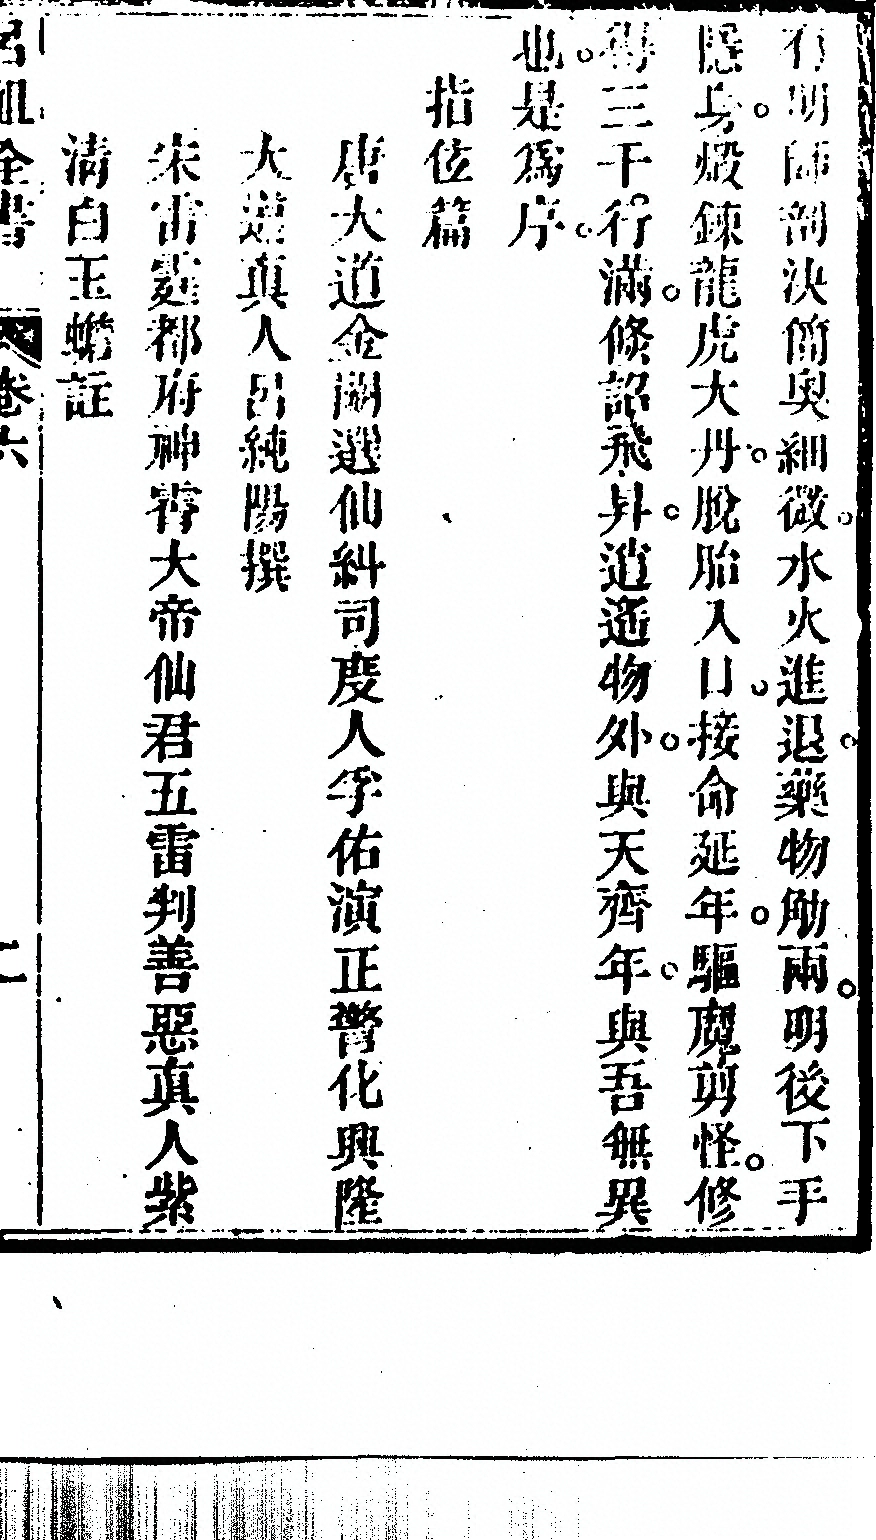 有明師剖決簡奧細微水火進退藥物觔兩明後下手
隱身煅鍊龍虎大丹脫胎入口接命延年驅魔剪怪修
得三千行滿候詔飛昇逍遙物外與天齊年與吾無異
也是爲序
指位篇
唐大道金闕選仙糾司度人孚佑演正警化興隆
大道真人呂純陽撰
宋雷霆都府神霄大帝仙君五雷判善惡真人紫
清白玉蟾註
呂祖全書 卷六 二